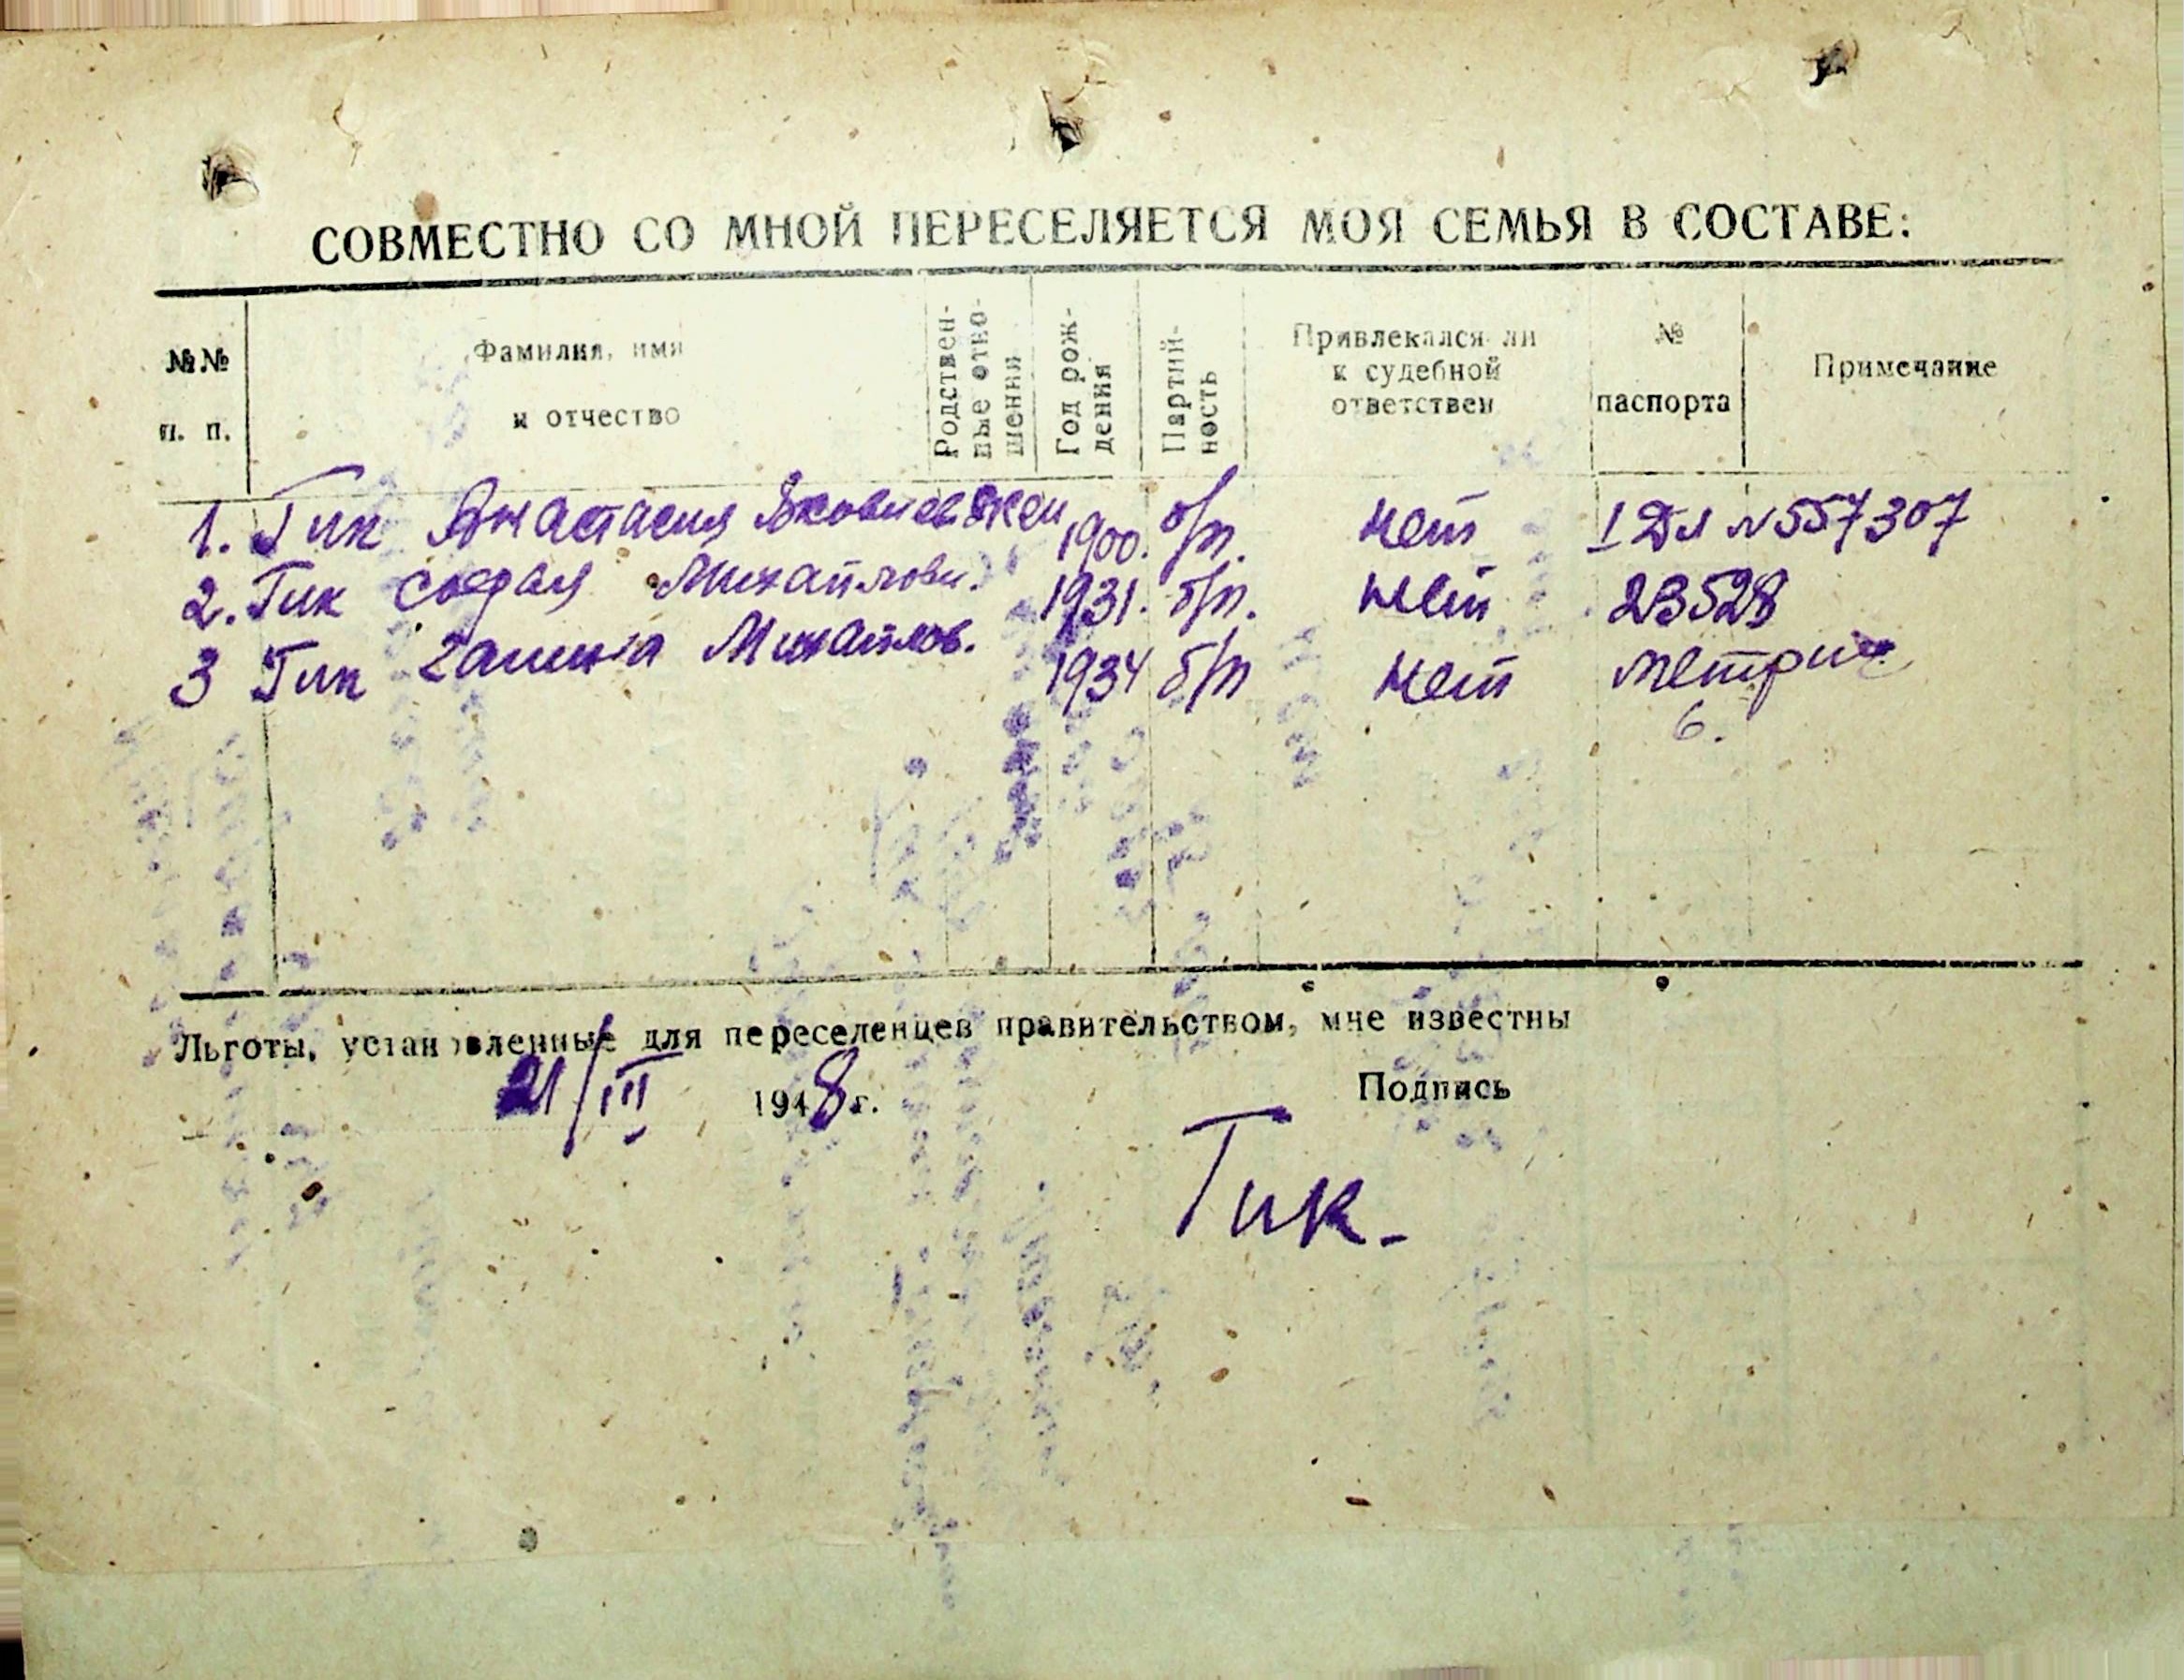 СОВМЕСТНО СО МНОЙ ПЕРЕСЕЛЯЕТСЯ МОЯ СЕМЬЯ В СОСТАВЕ:
№№ п. п.
Фамилия, имя и отчество
Родствен-ные отно-шения
Год рож-дения
Партий-ность
Привлекался ли к судебной ответствен
№ паспорта
Примечание
1. Тик Анастасия Яковлев жен 1900. б/п. нет I ДЛ №557307
2. Тик Софья Михайлови. 1931. б/п. нет 23528
3 Тик Галина Михайлов. 1934 б/п нет метрич.
6.
Льготы, установленные для переселенцев правительством, мне известны
21/III 1948 г. Подпись
Тик.